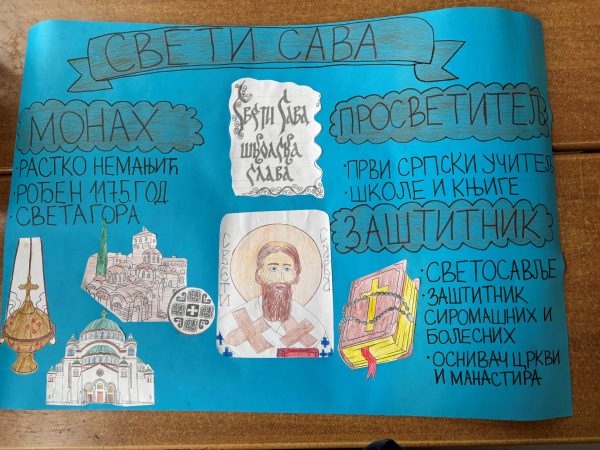 СВЕТИ САВА
МОНАХ
·РАСТКО НЕМАЊИЋ
·РОЂЕН 1175.ГОД
·СВЕТА ГОРА
Свети Сава
школска
слава
СВЕТИ
САВА
ПРОСВЕТИТЕЉ
·ПРВИ СРПСКИ УЧИТЕЉ
·ШКОЛЕ И КЊИГЕ
ЗАШТИТНИК
·СВЕТОСАВЉЕ
·ЗАШТИТНИК
СИРОМАШНИХ И
БОЛЕСНИХ
·ОСНИВАЧ ЦРКВИ
И МАНАСТИРА